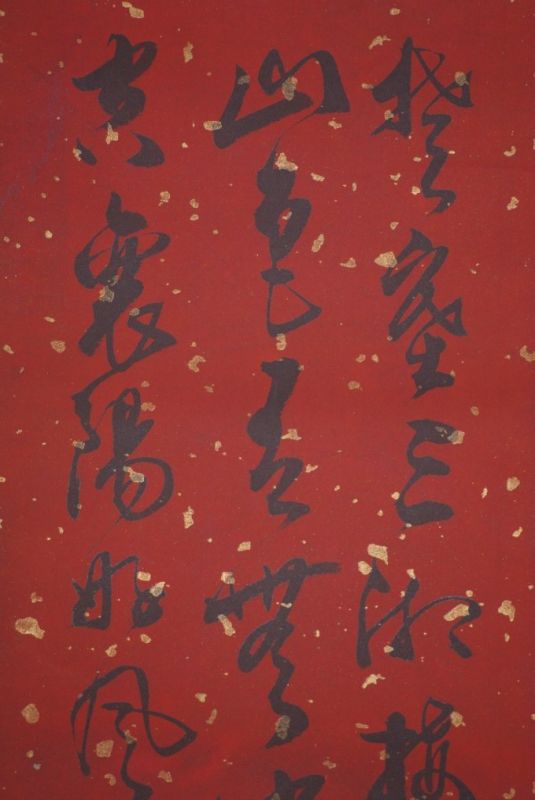 楚塞三湘接
山色有無
空襄陽好風